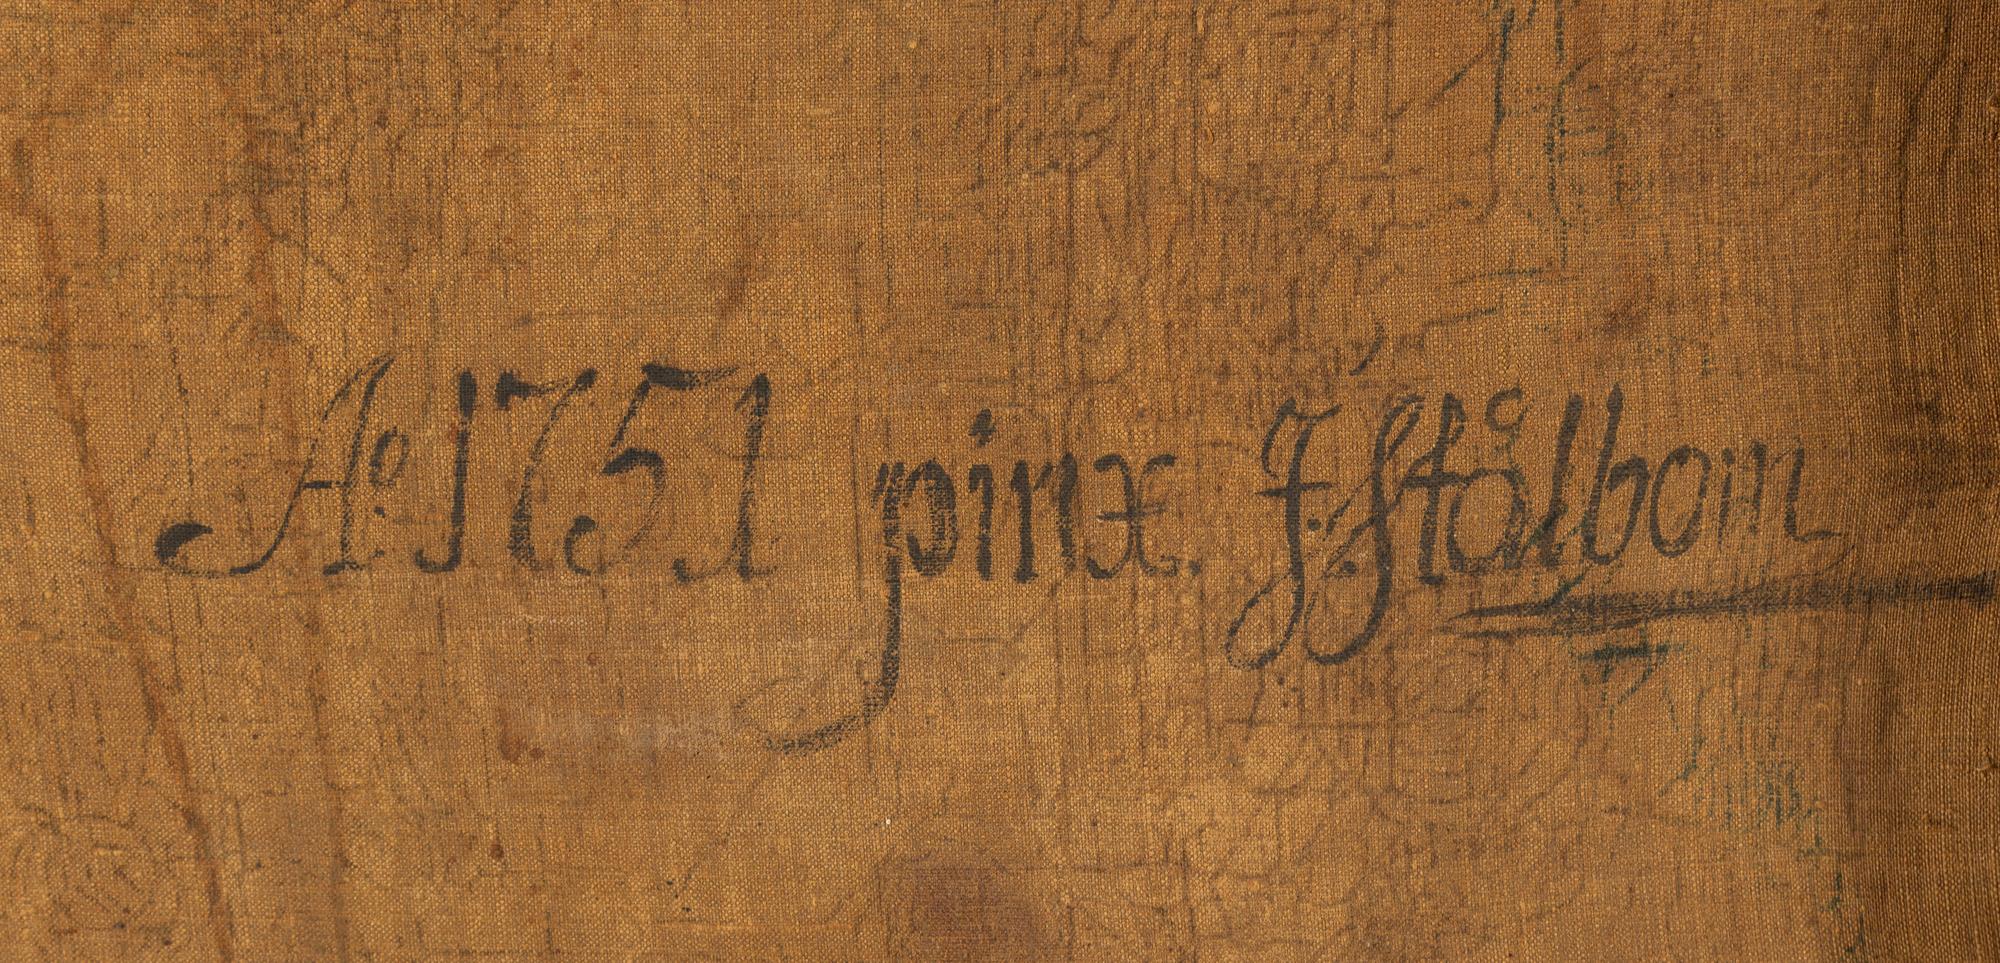 Ao. 1751 pinx. J: Stålbom